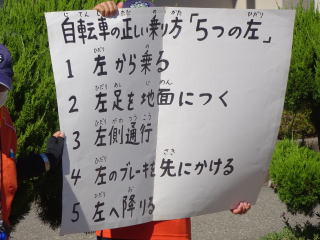 自転車の正しい乗り方「5つの左」
1 左から乗る
2 左足を地面につく
3 左側通行
4 左のブレーキを先にかける
5 左へ降りる